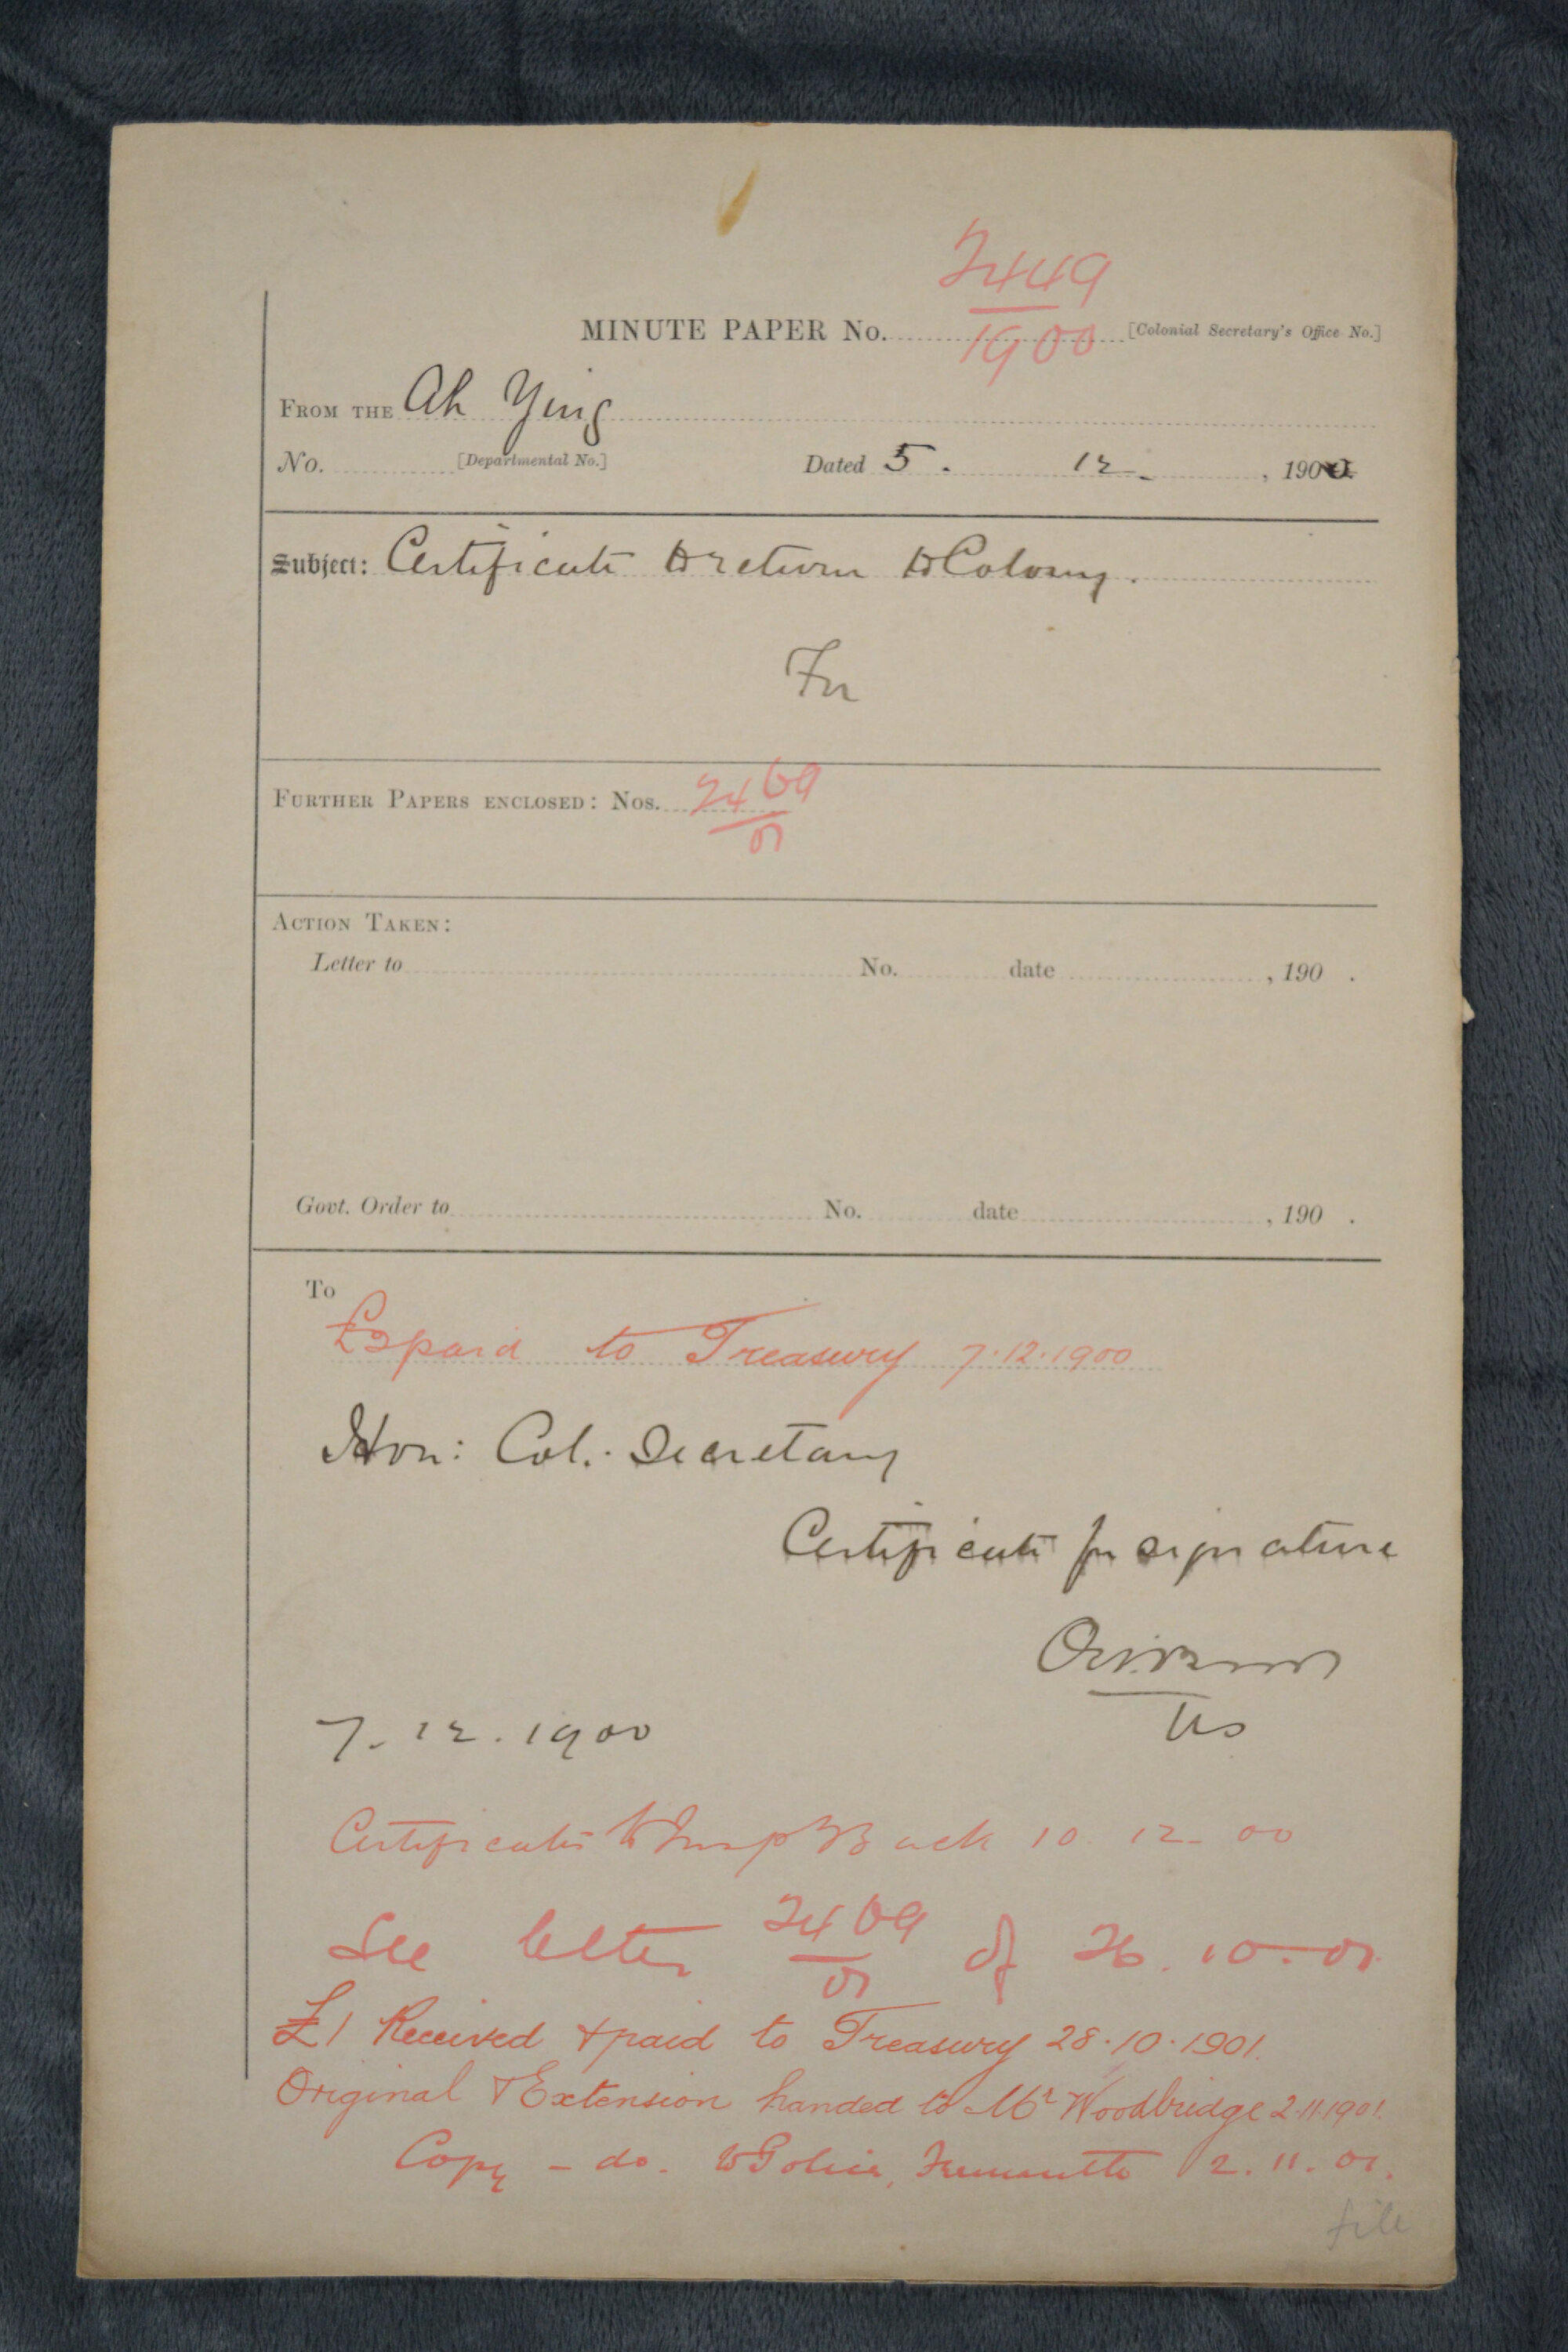 2449
MINUTE PAPER No. 1900 [Colonial Secretary's Office No.]
FROM THE Ah Ying
No. [Departmental No.] Dated 5. 12. , 1900
Subject: Certificate to return to Colony.
Fu
FURTHER PAPERS ENCLOSED: Nos. 2469
01
ACTION TAKEN:
Letter to No. date , 190 .
Govt. Order to No. date , 190 .
To
£2 paid to Treasury 7.12.1900
Hon: Col. Secretary
Certificate for signature
US
7. 12. 1900
Certificate to Insp Back 10 12 00
See letter 2469 of 26.10.01
01
£1 Received & paid to Treasury 28.10.1901.
Original & Extension handed to Mr Woodbridge 2.11.1901.
Copy – do. to Police, Fremantle 2.11.01.
file